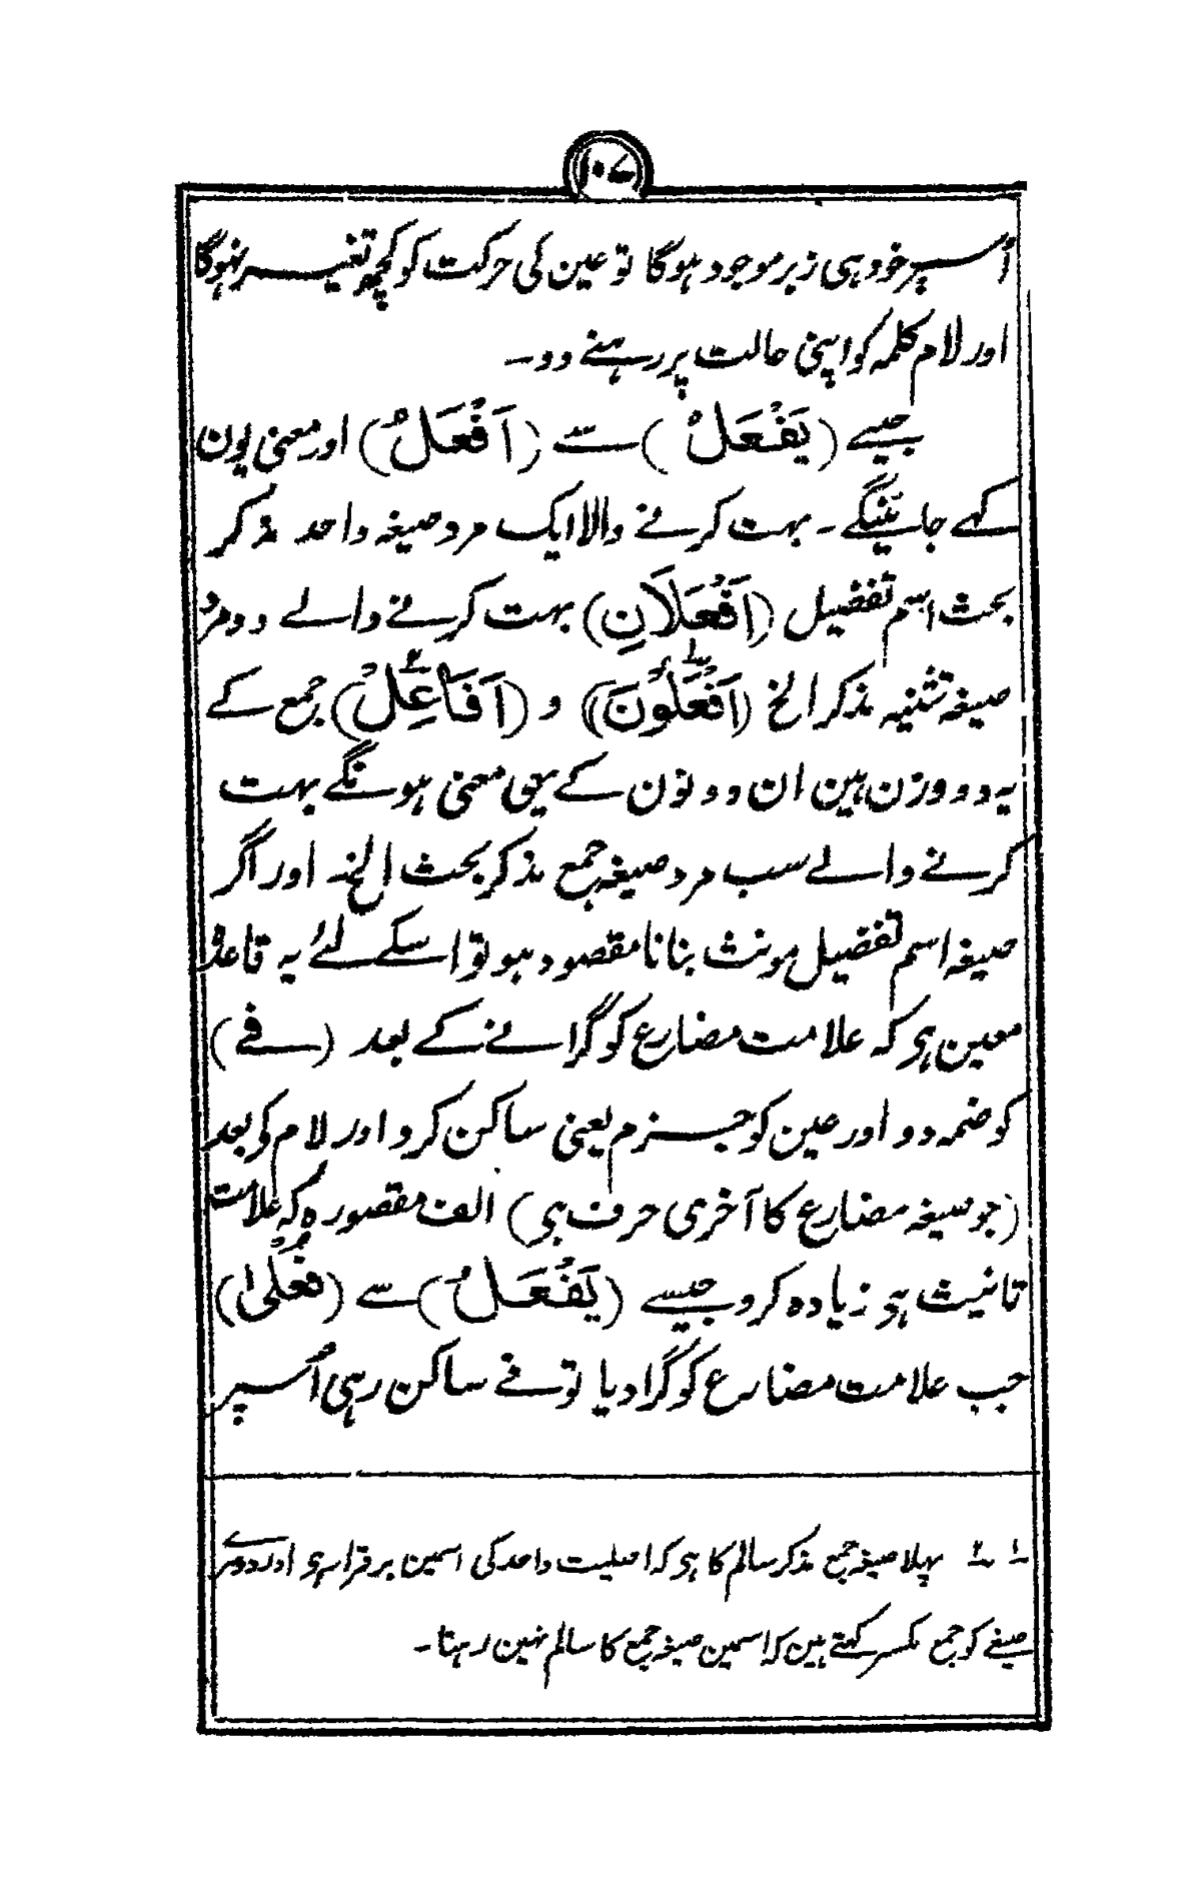 ۱۰۷
اُسپر خود ہی زبر موجود ہوگا تو عین کی حرکت کو کچھ تغیر نہوگا
اور لام کلمہ کو اپنی حالت پر رہنے دو۔
جیسے (یَفْعَلُ) سے (اَفْعَلُ) اور معنی یون
کہے جائینگے۔ بہت کرنے والا ایک مرد صیغہ واحد مذکر
بحث اسم تفضیل (اَفْعَلَانِ) بہت کرنے والے دو مرد
صیغہ تثنیہ مذکر الخ (اَفْعَلُوْنَ)۱ و (اَفَاعِلُ)۲ جمع کے
یہ دو وزن ہین ان دونون کے یہی معنی ہونگے بہت
کرنے والے سب مرد صیغہ جمع مذکر بحث الخ اور اگر
صیغہ اسم تفضیل مونث بنانا مقصود ہو تو اسکے لئے یہ قاعدہ
معین ہی کہ علامت مضارع کو گرانے کے بعد (فے)
کو ضمہ دو اور عین کو جزم یعنی ساکن کرو اور لام کو بعد
(جو صیغہ مضارع کا آخری حرف ہی) الف مقصورہ کہ علامت
تانیث ہی زیادہ کرو جیسے (یَفْعَلُ) سے (فُعْلیٰ)
جب علامت مضارع کو گرا دیا تو فے ساکن رہی اُسپر
۱ ۲ پہلا صیغہ جمع مذکر سالم کا ہی کہ اصلیت واحد کی اسمین برقرار ہی اور دوسرے
صیغے کو جمع مکسر کہتے ہین کہ اسمین صیغہ جمع کا سالم نہین رہتا۔